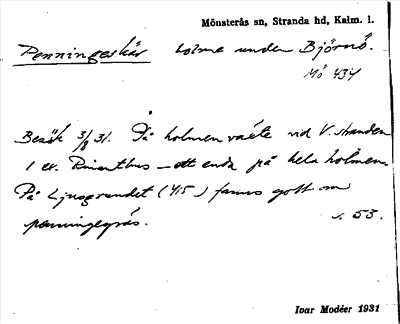 Mönsterås sn, Stranda hd, Kalm. l.
Penningeskär holme under Björnö.
Mö 434
Besök 3/8 31. På holmen växte vid V. stranden
1 ex. Rinanthus – ett enda på hela holmen.
På Ljusgrundet (415) fanns gott om
penningegräs. s. 53.
Ivar Modéer 1931